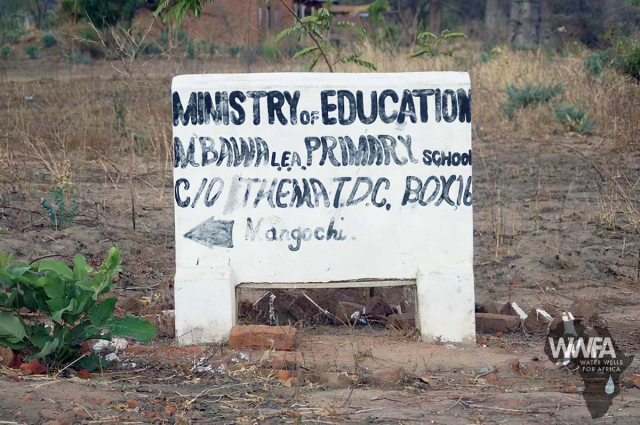 MINISTRY OF EDUCATION
MBAWA L.E.A. PRIMARY SCHOOL
C/O THEMA T.D.C, BOX 16
Mangochi.
WWFA
WATER WELLS
FOR AFRICA